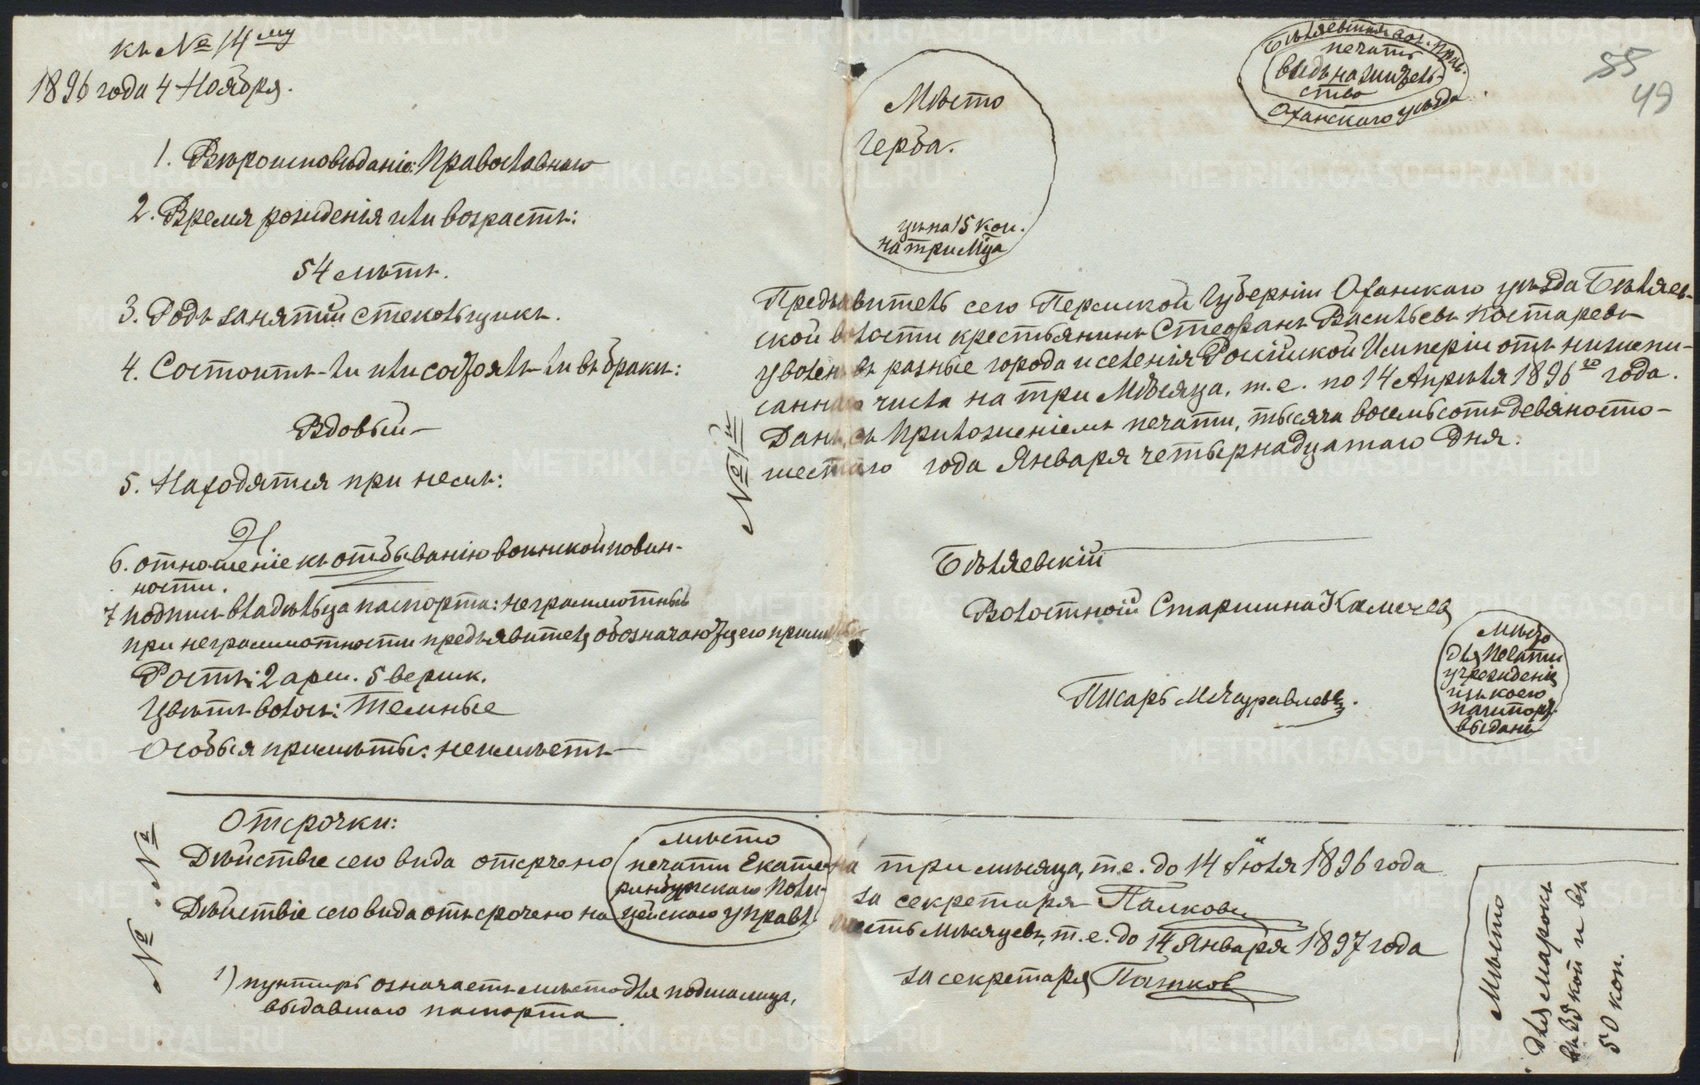 къ № 14му
1896 года 4 Ноября.
1. Вѣроисповѣданіе: Православнаго
2. Время рожденія или возрастъ:
54 лѣтъ.
3. Родъ занятій стекольщикъ.
4. Состоитъ-ли или состоялъ-ли въ бракѣ:
Вдовый
5. Находятся при немъ:
6. отношеніе къ отбыванію воинской повин-
ности.
7 подпись владѣльца паспорта: неграмотный
при неграмотности предъявителя обозначаются его примѣты
Ростъ: 2 арш. 5 вершк.
Цвѣтъ волосъ: Темные
Особыя примѣты: неимѣетъ
Бѣляевскаго вол. Прав.
печать
видъ на житель-
ство
Оханскаго уѣзда
55
49
Мѣсто
герба.
цѣна 15 коп.
на три мѣсяца
Предъявитель сего Пермской Губерніи Оханскаго уѣзда Бѣляев-
ской волости крестьянинъ Стефанъ Васильевъ Костаревъ
уволенъ въ разные города и селенія Россійской Имперіи отъ нижепи-
саннаго числа на три Мѣсяца, т.е. по 14 Апрѣля 1896го года.
Данъ, съ приложеніемъ печати, тысяча восемьсотъ девяносто-
шестаго года Января четырнадцатаго дня.
№ 14
Бѣляевскій
Волостной Старшина
Писарь
Мѣсто
для печати
учрежденія
изъ коего
паспортъ
выданъ
Отсрочки:
Дѣйствіе сего вида отсрочено на три мѣсяца, т.е. до 14 Іюля 1896 года
мѣсто
печати Екате-
ринбургскаго Поли-
цейскаго управл.
за секретаря
Дѣйствіе сего вида отъсрочено на шесть мѣсяцевъ, т.е. до 14 Января 1897 года
за секретаря
№ №
1) пунктиръ означаетъ мѣсто для подписи лица,
выдавшаго паспорта
Мѣсто
для марокъ
въ 35 коп и въ
50 коп.
METRIKI.GASO-URAL.RU